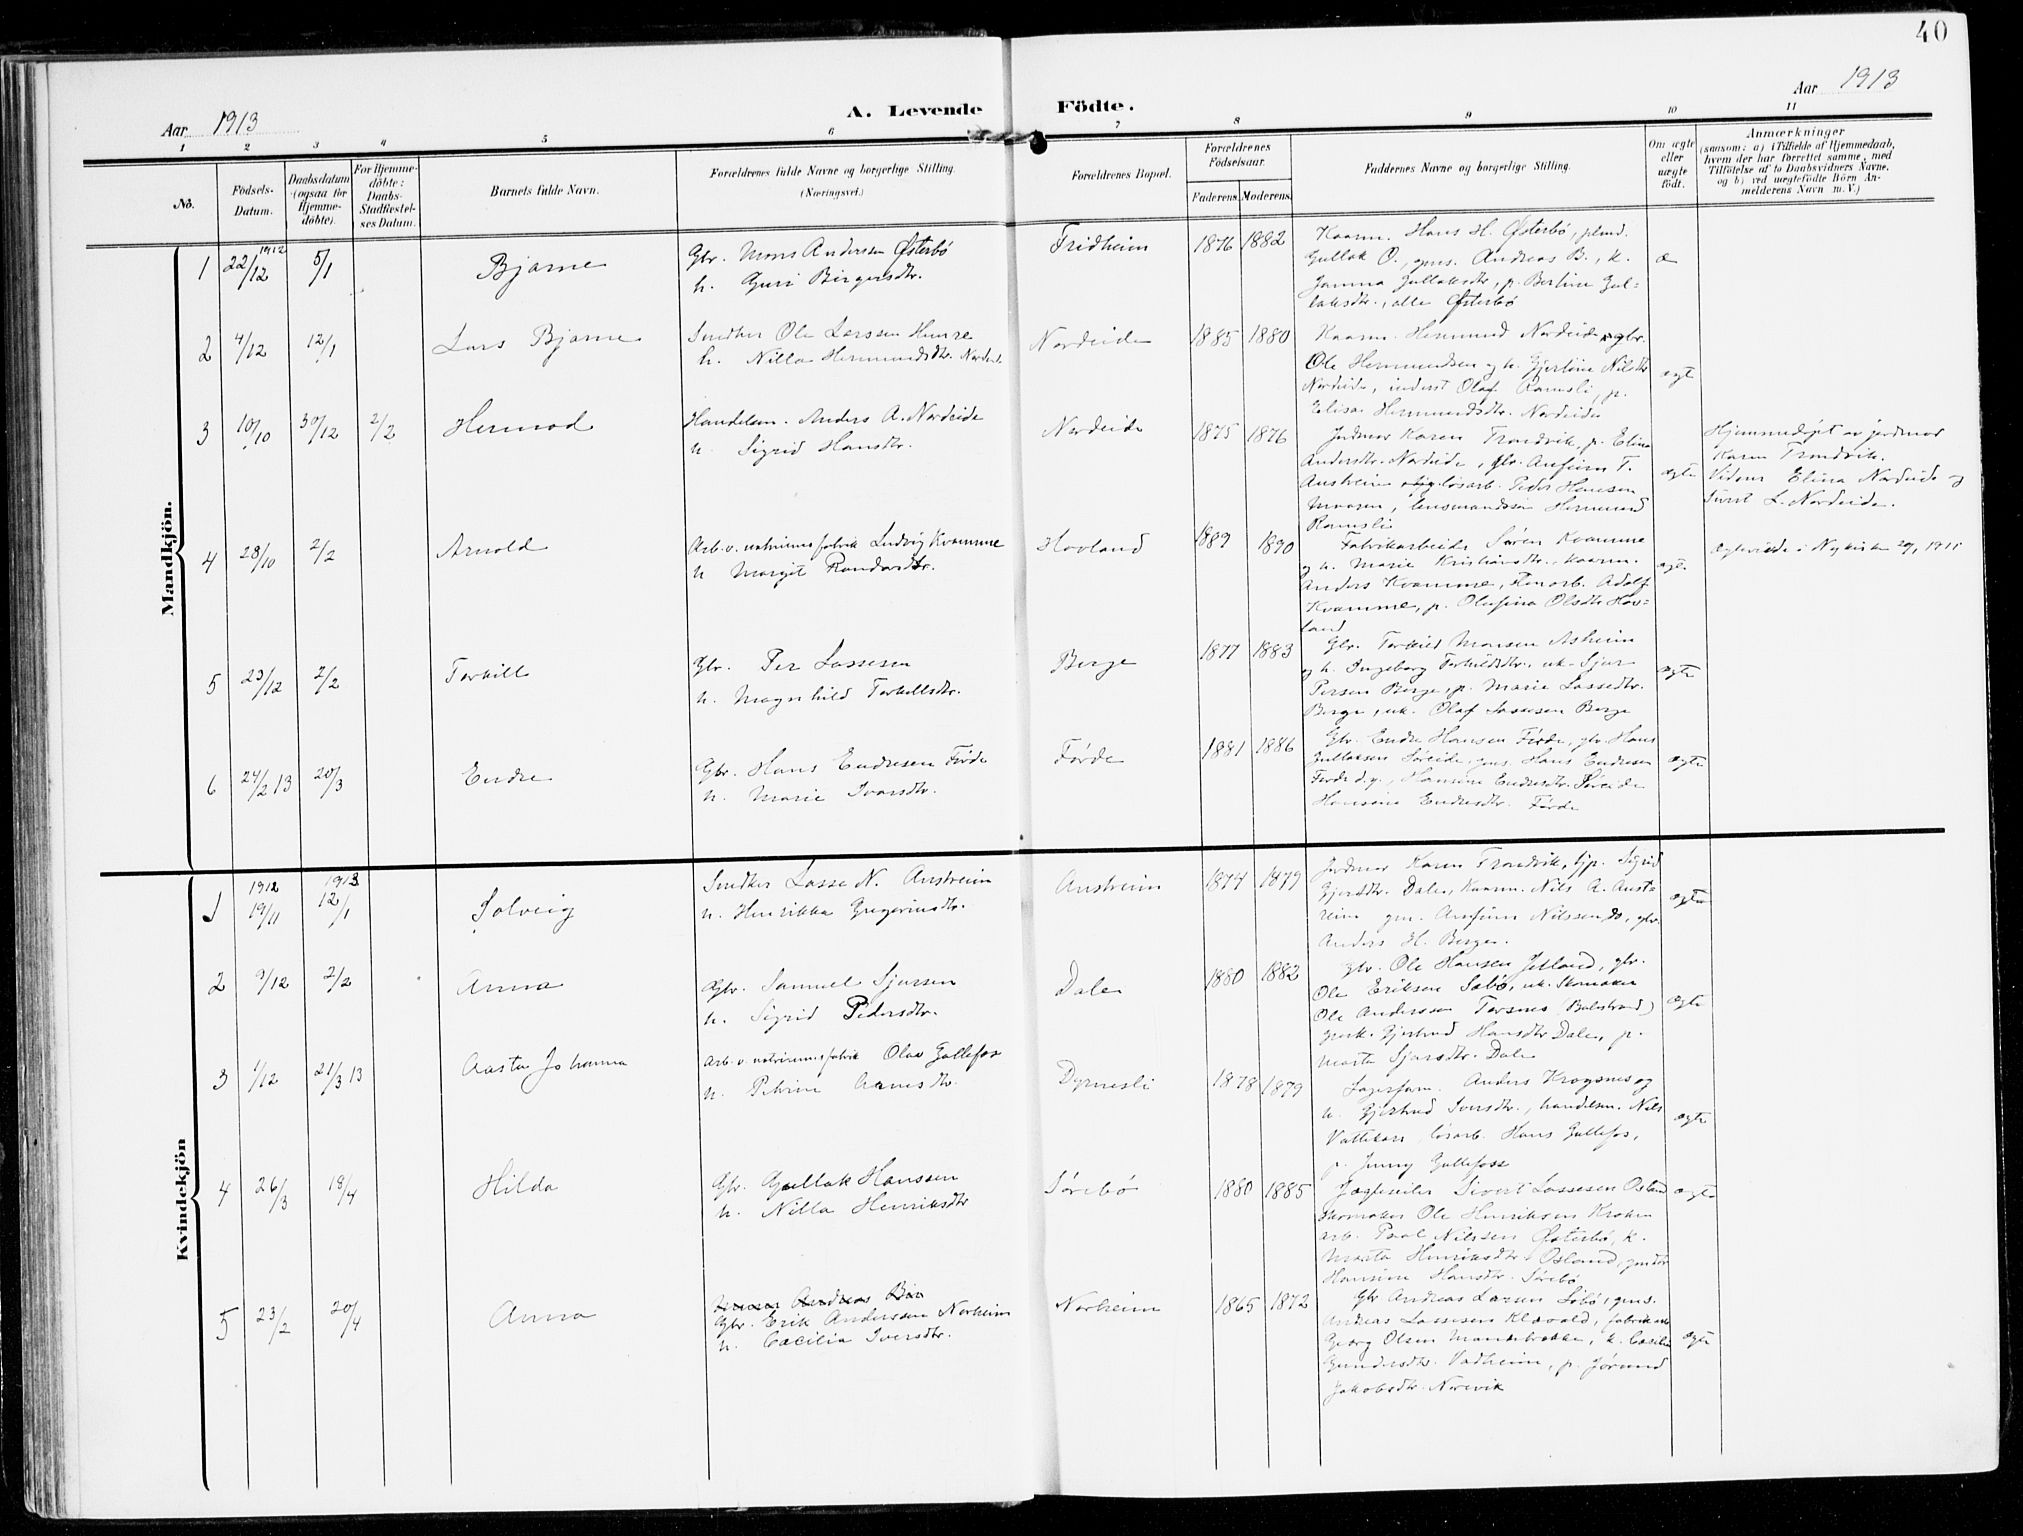 40
Aar 1913
A. Levende Födte.
Aar 1913
1 2 3 4 5 6 7 8 9 10 11
No.
Födsels-Datum.
Daabsdatum (ogsaa for Hjemme-döbte).
For Hjemme-döbte: Daabs-Stadfæstel-ses Datum.
Barnets fulde Navn.
Forældrenes fulde Navne og borgerlige Stilling.
(Næringsvei.)
Forældrenes Bopæl.
Forældrenes Födselsaar.
Faderens. Moderens.
Faddernes Navne og borgerlige Stilling.
Om ægte eller uægte födt.
Anmærkninger
(saasom: a) i Tilfælde af Hjemmedaab, hvem der har forrettet samme, med Tilföielse af to Daabsvidners Navne, og b) ved uægtefödte Börn An-melderens Navn m. V.)
Mandkjön.
1 1912 22/12 5/1 Bjarne
Gbr. Mons Andersen Østerbö
h. Guri Birgersdtr.
Fridheim 1876 1882
Kaarm. Hans H. Østerbö, plmd.
Gullak O., gms. Andreas B., k.
Janna Gullaksdtr., p. Bertine Gul=
laksdtr., alle Østerbö
æ
2 4/12 12/1 Lars Bjarne
Snedker Ole Larssen
h. Nilla Hermundsdtr. Nordeide
Nordeide 1885 1880
Kaarm. Hermund Nordeide, gbr.
Ole Hermundsen og h. Gjertine Nilsdtr
Nordeide, inderst Olaf Ramsli, p.
Elisa Hermundsdtr. Nordeide
ægt
3 10/10 30/12 2/2 Hermod
Handelsm. Anders A. Nordeide
h. Sigrid Hansdtr.
Nordeide 1875 1876
Jordmor Karen Trondvik, p. Elina
Andersdtr. Nordeide, gbr. Anfinn T.
Austreim løsarb. Peder Hansen
Maasen, lensmandssøn Hermund
Ramsli
ægte
Hjemmedøpt av jordmor
Karen Trondvik.
Vidner Elina Nordeide og
Sivert L. Nordeide.
4 28/10 2/2 Arnold
Arb. v. fabrik Ludvig Kvamme
h. Margit Randversdtr.
Hovland 1889 1890
Fabrikarbeider Søren Kvamme
og h. Marie Kristiansdtr., kaarm.
Anders Kvamme, Adolf
Kvamme, p. Olufina Olsdtr. Hov=
land
ægte
5 23/12 2/2 Torkill
Gbr. Per Lassesen
h. Magnhild Torkillsdtr.
Berge 1877 1883
Gbr. Torkild Monsen Asheim
og h. Ingeborg Torkildsdtr. uk. Sjur
Persen Berge, p. Marie Lassedtr.
Berge, uk. Olaf Lassesen Berge
ægte
6 24/2 13 20/3 Endre
Gbr. Hans Endresen Førde
h. Marie Ivarsdtr.
Førde 1881 1886
Gbr. Endre Hansen Førde, gbr. Hans
Gullaksen Søreide, gms. Hans Endresen
Førde d.y., Hansine Endresdtr. Søreide
Hansine Endresdtr. Førde
ægte
Kvindekjön
1 1912 19/11 1913 12/1 Solveig
Snedker Lasse N. Austreim
h. Henrikka Gregeriusdtr.
Austreim 1874 1879
Jordmor Karen Trondvik, Sigrid
Gjersdtr. Dale, kaarm. Nils A. Aust-
reim gm. Anfinn Nilssen, do, gbr.
Anders H. Berge.
ægte
2 9/12 2/2 Anna
Gbr. Samuel Sjursen
h. Sigrid Pedersdtr.
Dale 1880 1882
Gbr. Ole Hansen Jetland, gbr.
Ole Eriksen Sæbø, uk. Skomaker
Ole Anderssen Torsnes (Balestrand)
Gjertrud Hansdtr. Dale, p.
Marta Sjursdtr. Dale
ægte
3 1/12 21/3 13 Aasta Johanna
Arb. v. fabrik Olav Gullefos
h. Petrine
Dyrnesli 1878 1879
Anders Krogsnes og
h. Gjertrud Iversdtr., handelsm. Nils
Vattekar, løsarb. Hans Gullefos,
p. Jenny Gullefoss
ægte
4 26/3 18/4 Hilda
Gbr. Gullak Hanssen
h. Nilla Henriksdtr
Sørebø 1880 1885
Jægteeier Sivert Lassesen Osland
skomaker Ole Henriksen Kraken
arb. Paal Nilssen Østerbö, k.
Marta Henriksdtr. Osland,
Hansine Hansdtr. Sørebø
ægte
5 23/2 20/4 Anna
Gbr. Erik Anderssen Norheim
h. Cæcilia Iversdtr.
Norheim 1865 1872
Gbr Andreas Larsen Sæbø, gms.
Andreas Lassesen Klævold,
Georg Olsen k. Cæcilie
Gundersdtr. Vadheim, p. Jørund
Jakobsdtr. Norevik
ægte